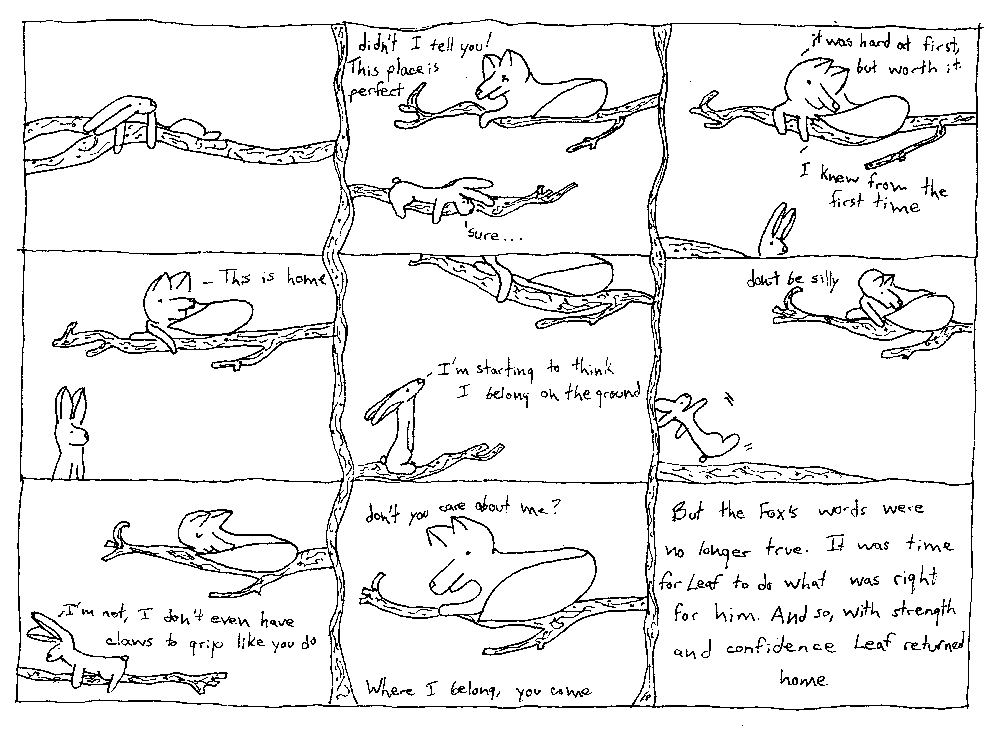 didn't I tell you!
This place is
perfect
sure...
it was hard at first,
but worth it.
I knew from the
first time
This is home
I'm starting to think
I belong on the ground
don't be silly
I'm not, I don't even have
claws to grip like you do
don't you care about me?
Where I belong, you come
But the Fox's words were
no longer true. It was time
for Leaf to do what was right
for him. And so, with strength
and confidence Leaf returned
home.